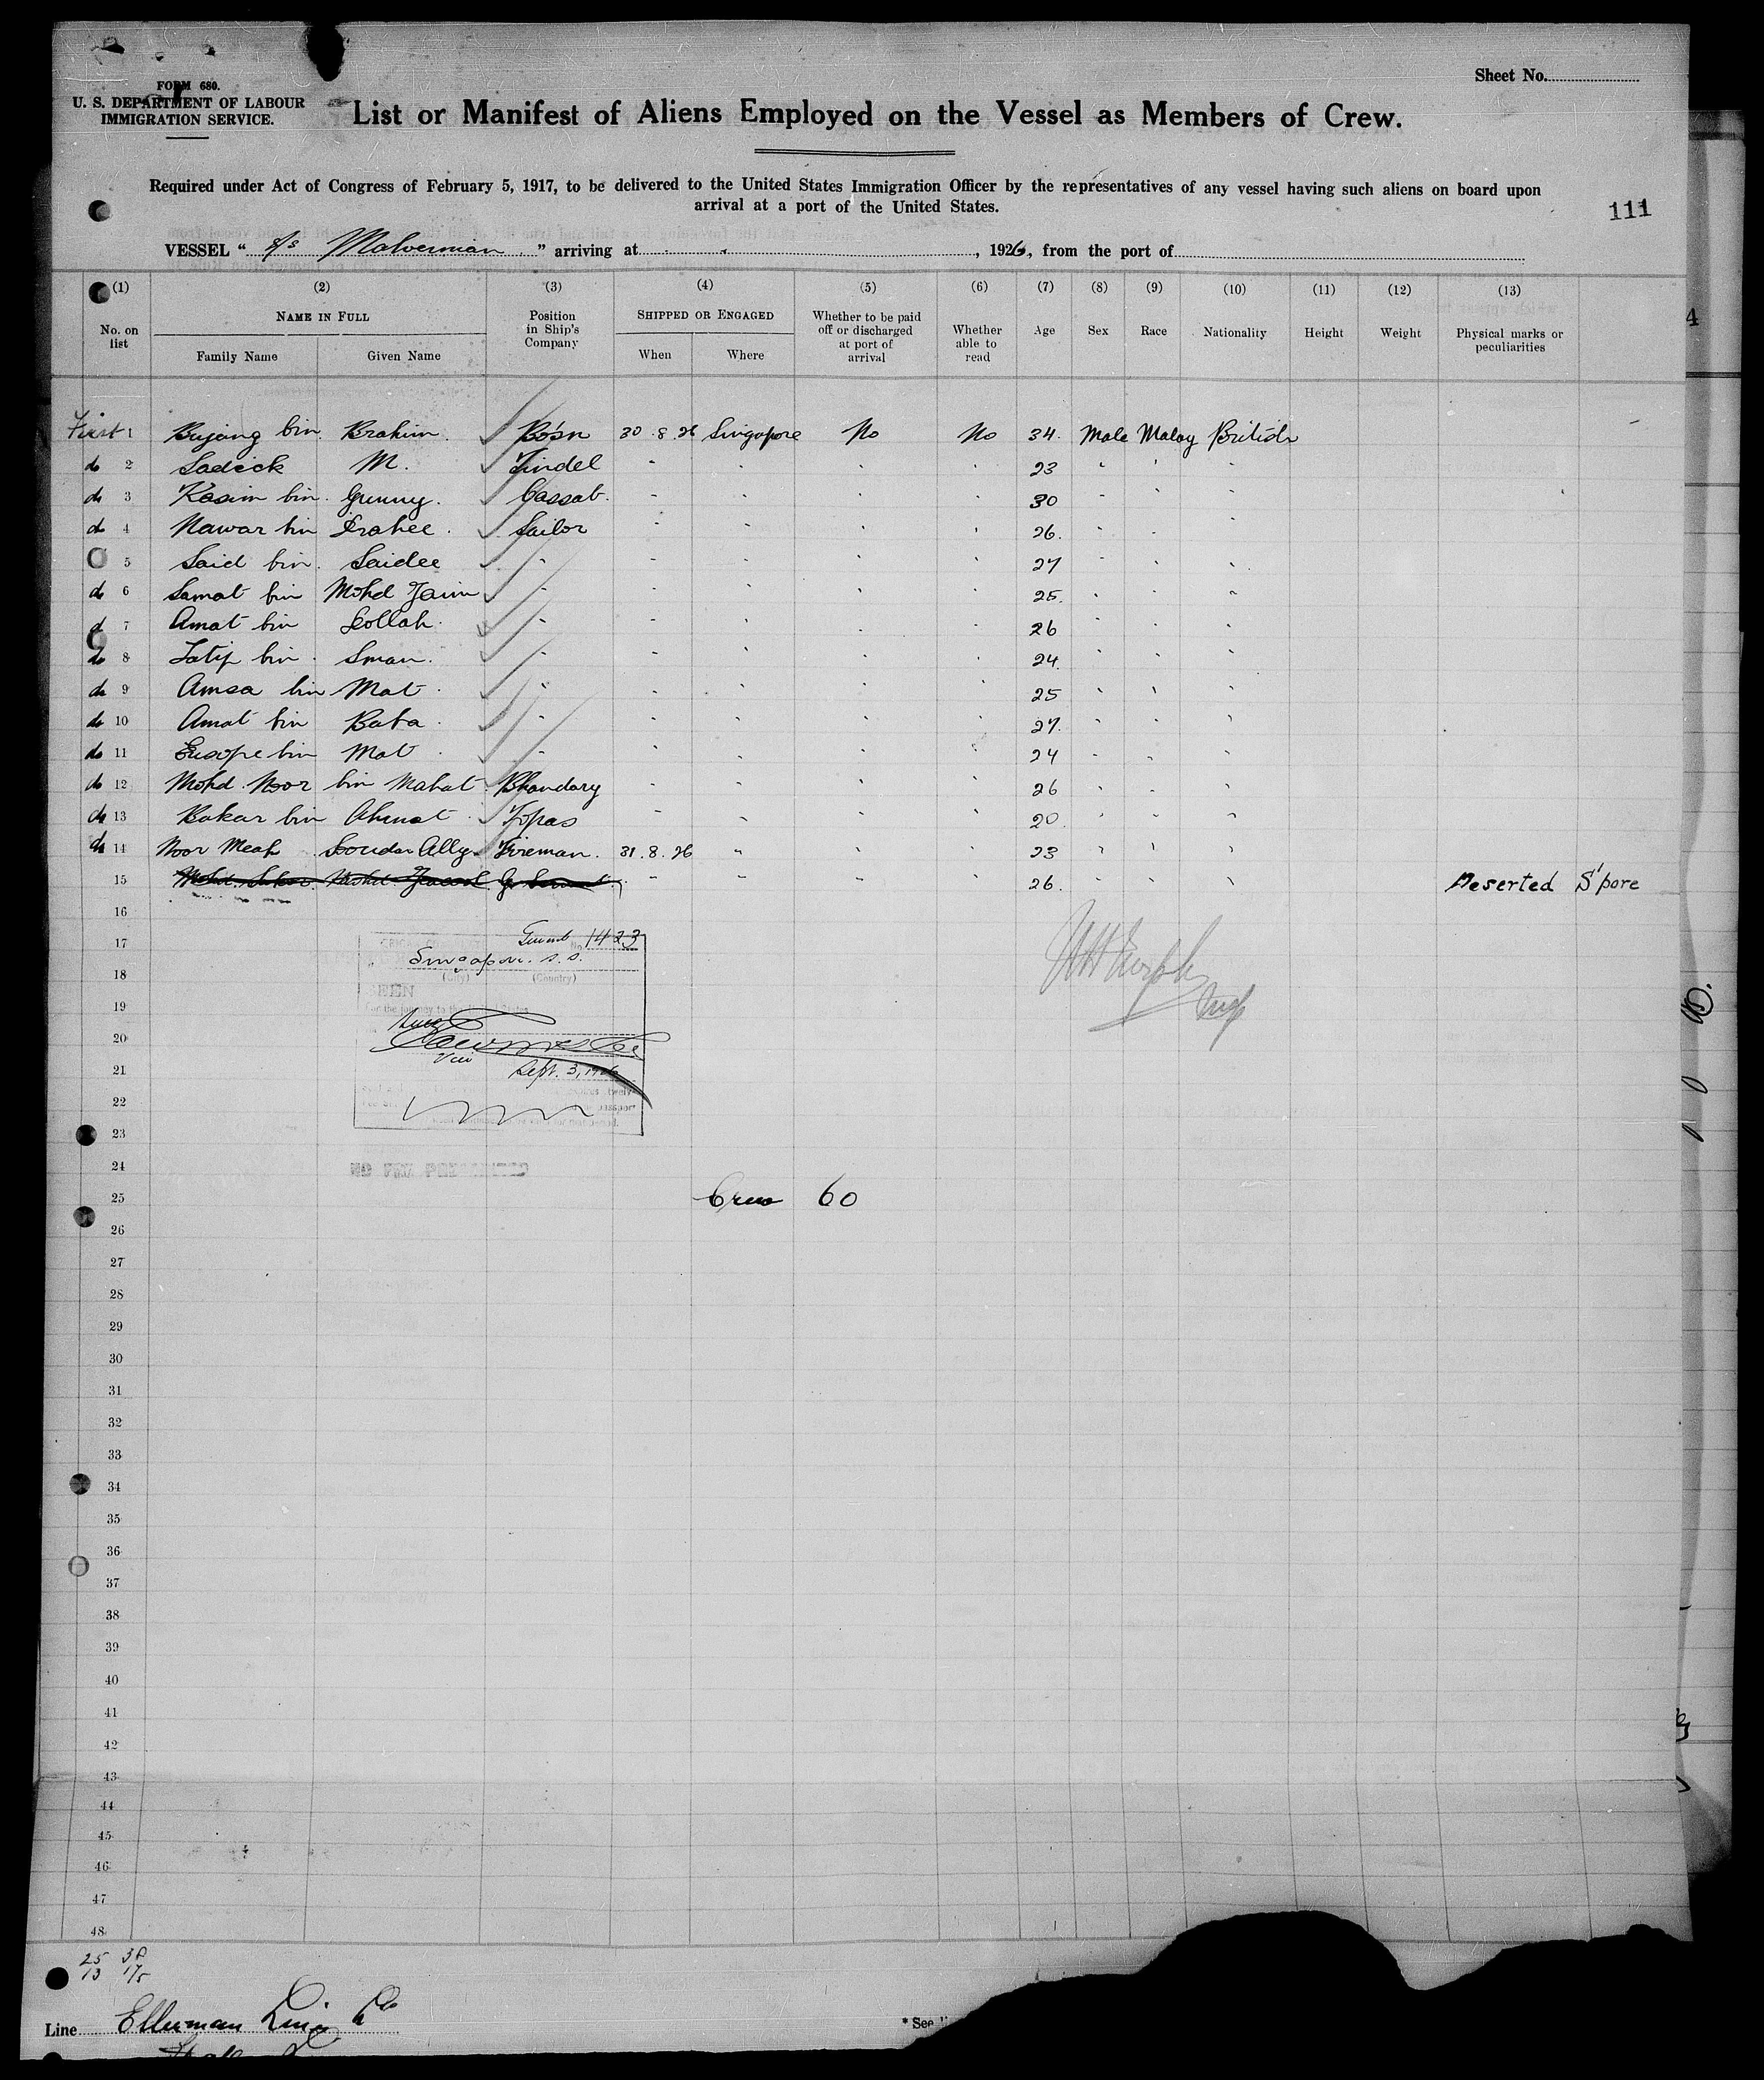 Sheet No.
FORM 680.
U. S. DEPARTMENT OF LABOUR
IMMIGRATION SERVICE.
List or Manifest of Aliens Employed on the Vessel as Members of Crew.
Required under Act of Congress of February 5, 1917, to be delivered to the United States Immigration Officer by the representatives of any vessel having such aliens on board upon
arrival at a port of the United States.
111
VESSEL “ s/s Malvernian ” arriving at , 1926, from the port of
(1) (2) (3) (4) (5) (6) (7) (8) (9) (10) (11) (12) (13)
No. on list NAME IN FULL Position in Ship's Company SHIPPED OR ENGAGED Whether to be paid off or discharged at port of arrival Whether able to read Age Sex Race Nationality Height Weight Physical marks or peculiarities
Family Name Given Name When Where
First 1 Bujang bin Brahim Bo'sn 30.8.26 Singapore No No 34. Male Malay British
do 2 Sadick M. Tindel " " " " 23 " " "
do 3 Kasim bin Gunny. Cassab. " " " " 30 " " "
do 4 Nawar bin Drahee. Sailor " " " " 26. " " "
5 Said bin Saidee " " " " " 27 " "
do 6 Samat bin Mohd Jaim " " " " " 25. " " "
do 7 Amat bin Dollah. " " " " " 26 " " "
do 8 Latip bin Sman. " " " " " 24. " " "
do 9 Amsa bin Mat " " " " " 25 " " "
do 10 Amat bin Baba " " " " " 27. " " "
do 11 Eusope bin Mat " " " " " 24 " " "
do 12 Mohd. Noor bin Mahat Bhandary " " " " 26 " " "
do 13 Bakar bin Ahmat Topas " " " " 20. " " "
do 14 Noor Meah Soudar Ally. Fireman. 31.8.26 " " " 23 " " "
15 " " " " 26. " " " Deserted S'pore
16
17 No 1423
Singapore. S.S.
18 (City) (Country)
SEEN
19 for the journey to the United States
20
Vice
21 Sept. 3, 1926
22
23
24
25 Crew 60
26
27
28
29
30
31
32
33
34
35
36
37
38
39
40
41
42
43
44
45
46
47
48
25 38
13 17/5
Line Ellerman Line
* See